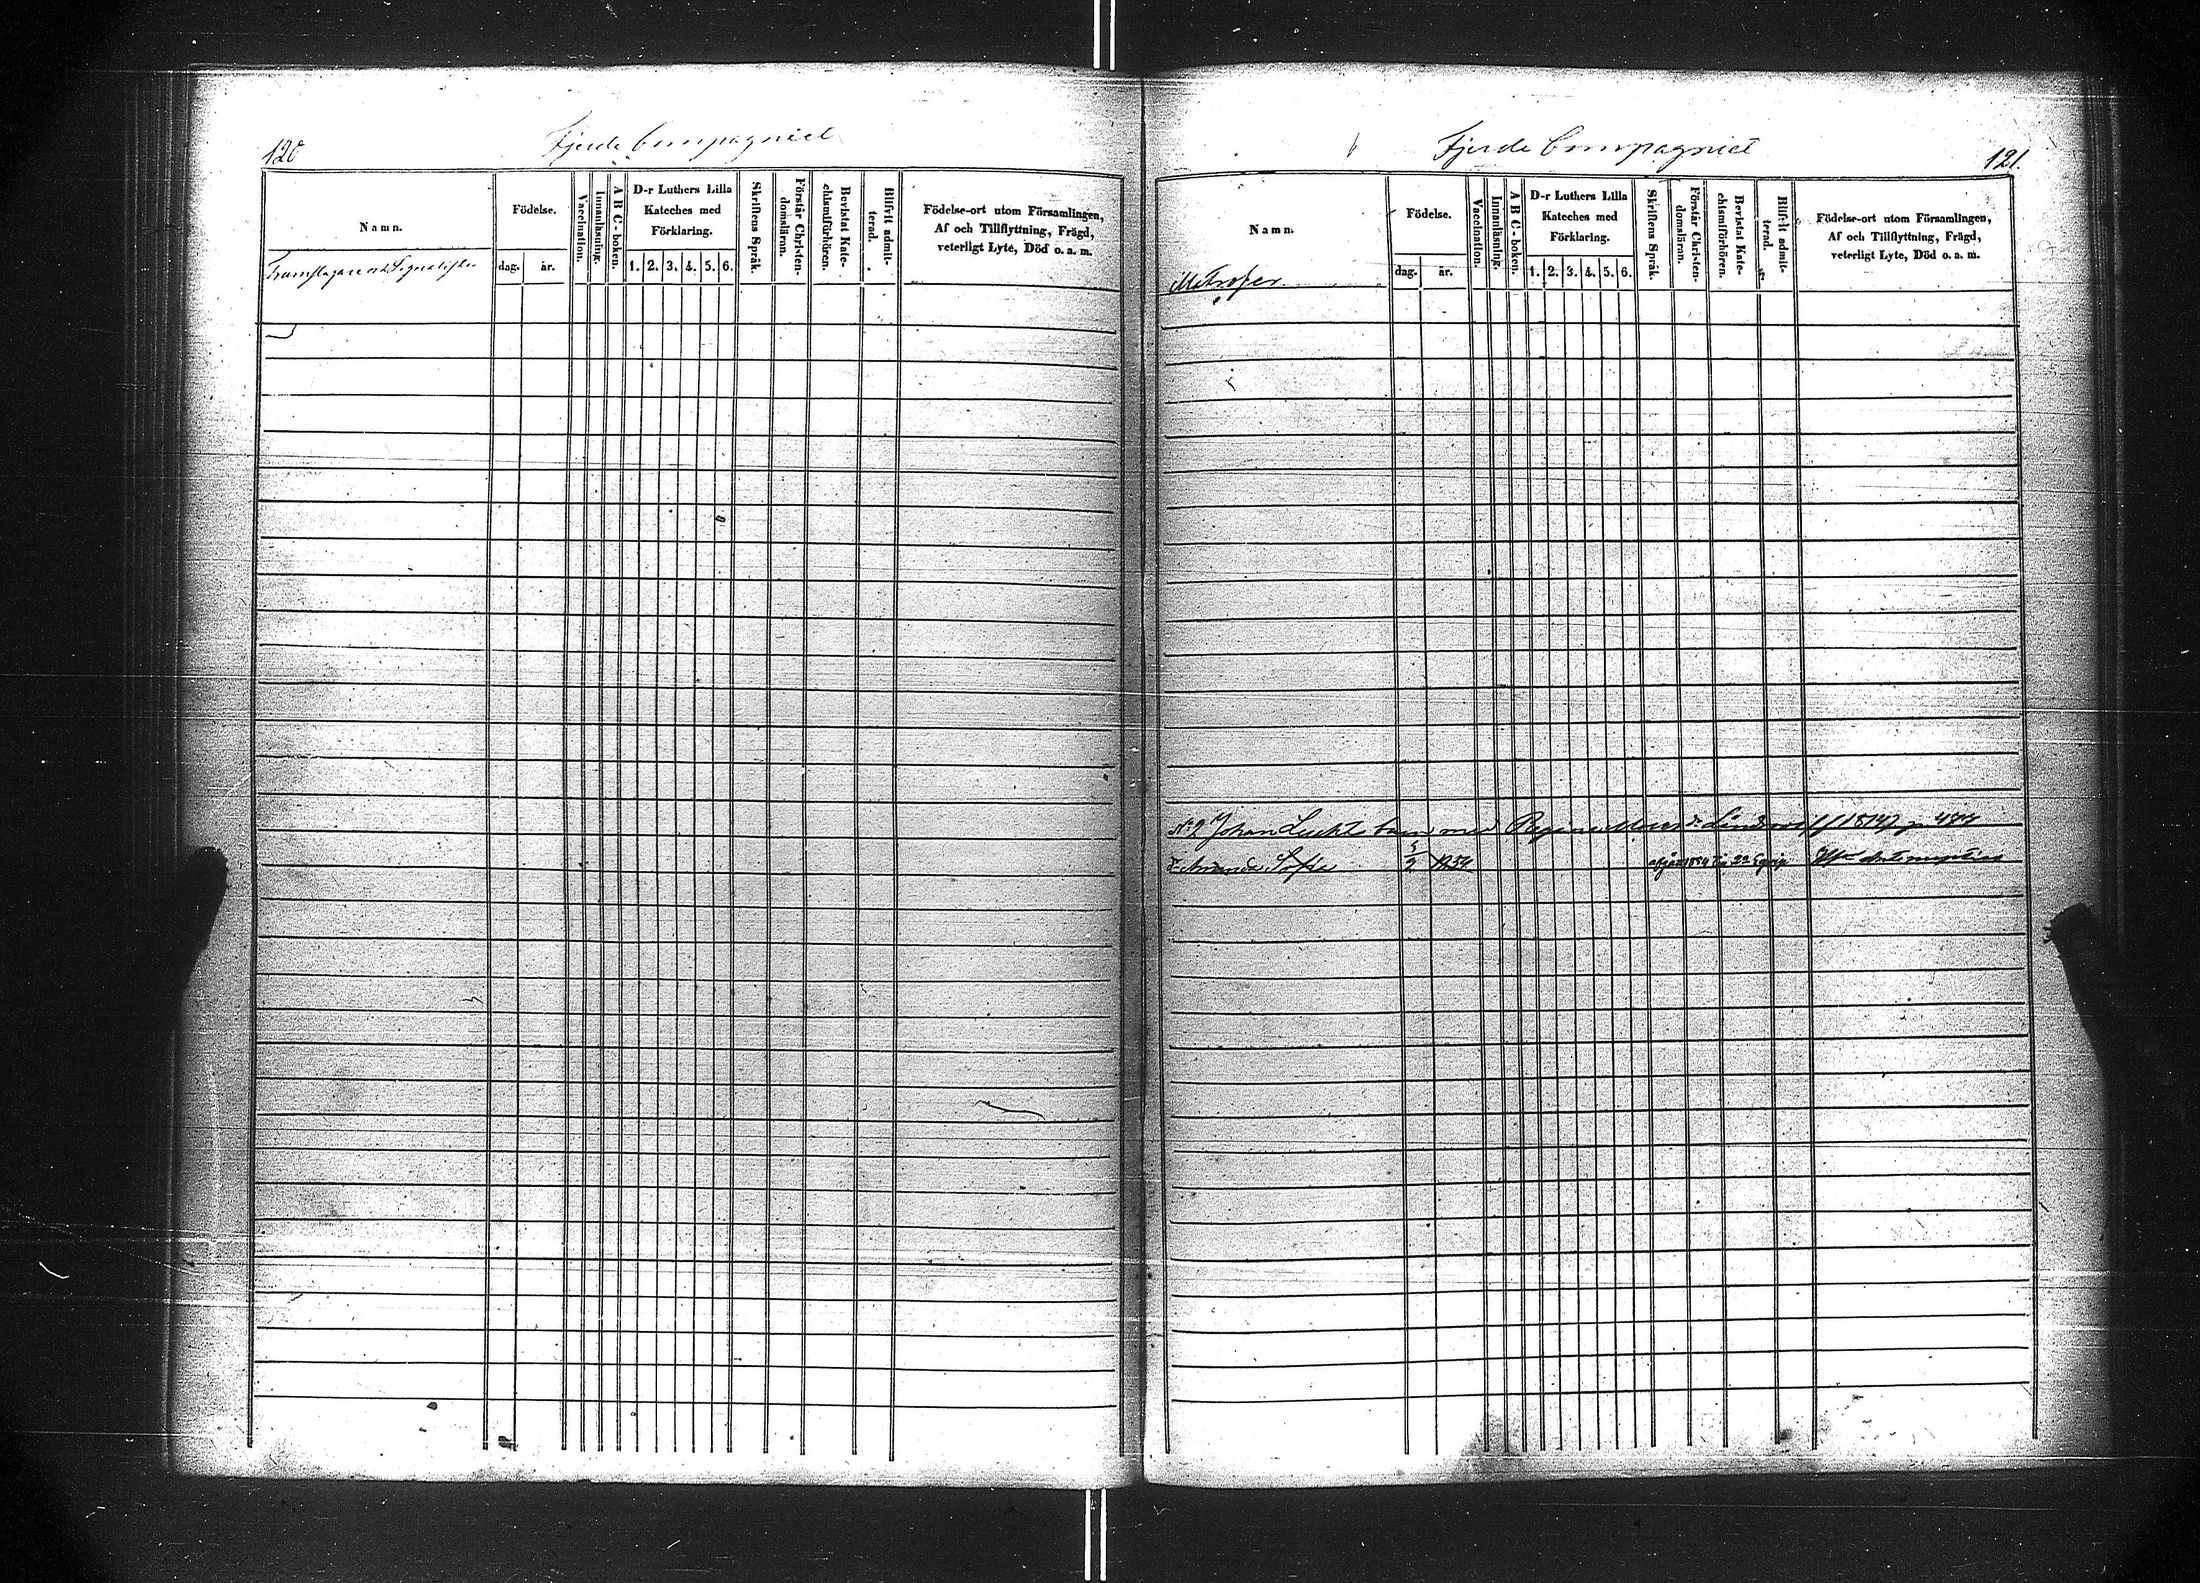 120
Fjerde Compagniet
Namn.
Trumslagare och Signalister
Födelse.
dag.
år.
Vaccination.
Innanläsning.
A B C - boken.
D-r Luthers Lilla
Kateches med
Förklaring.
1. 2. 3. 4. 5. 6.
Skriftens Språk.
Förstår Christen-
domsläran.
Bevistat Kate-
chismiförhören.
Blifvit admit-
terad.
Födelse-ort utom Församlingen,
Af och Tillflyttning, Frägd,
veterligt Lyte, Död o. a. m.
Fjerde Compagniet
121.
Namn.
Matroser.
Födelse.
dag.
år.
Vaccination.
Innanläsning.
A B C - boken.
D-r Luthers Lilla
Kateches med
Förklaring.
1. 2. 3. 4. 5. 6.
Skriftens Språk.
Förstår Christen-
domsläran.
Bevistat Kate-
chismiförhören.
Blifvit admit-
terad.
Födelse-ort utom Församlingen,
Af och Tillflyttning, Frägd,
veterligt Lyte, Död o. a. m.
No 2 Johan barn med Regina
Sofia 5/2 1854 1854 2a Equip